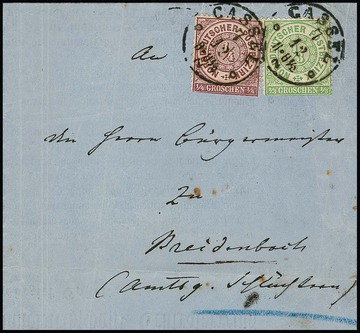 CASSEL
CASSEL
NORDDEUTSCHER POSTBEZIRK
1/4 GROSCHEN 1/4
1/3 GROSCHEN 1/3
An
den Herrn Bürgermeister
zu
Breidenbach
(Amtsg. Schlüchtern)